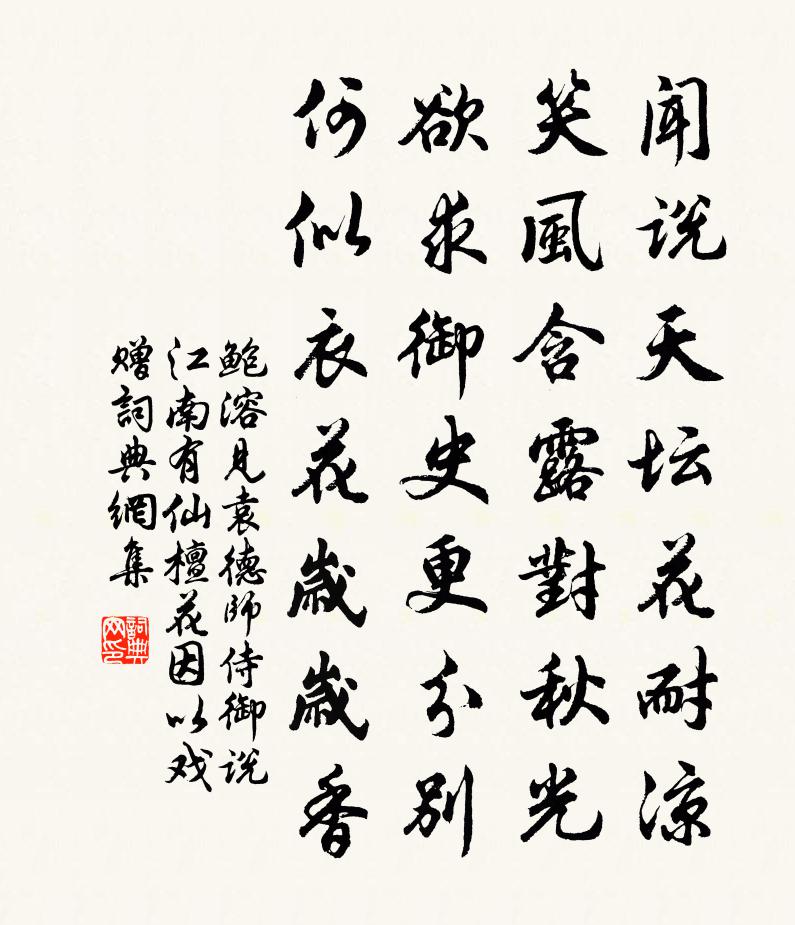 闻说天坛花耐凉
笑風含露對秋光
欲求御史更分别
何似衣花歲歲香
鲍溶見袁德师侍御说
江南有仙檀花因以戏
赠詞典網集
詞典网印